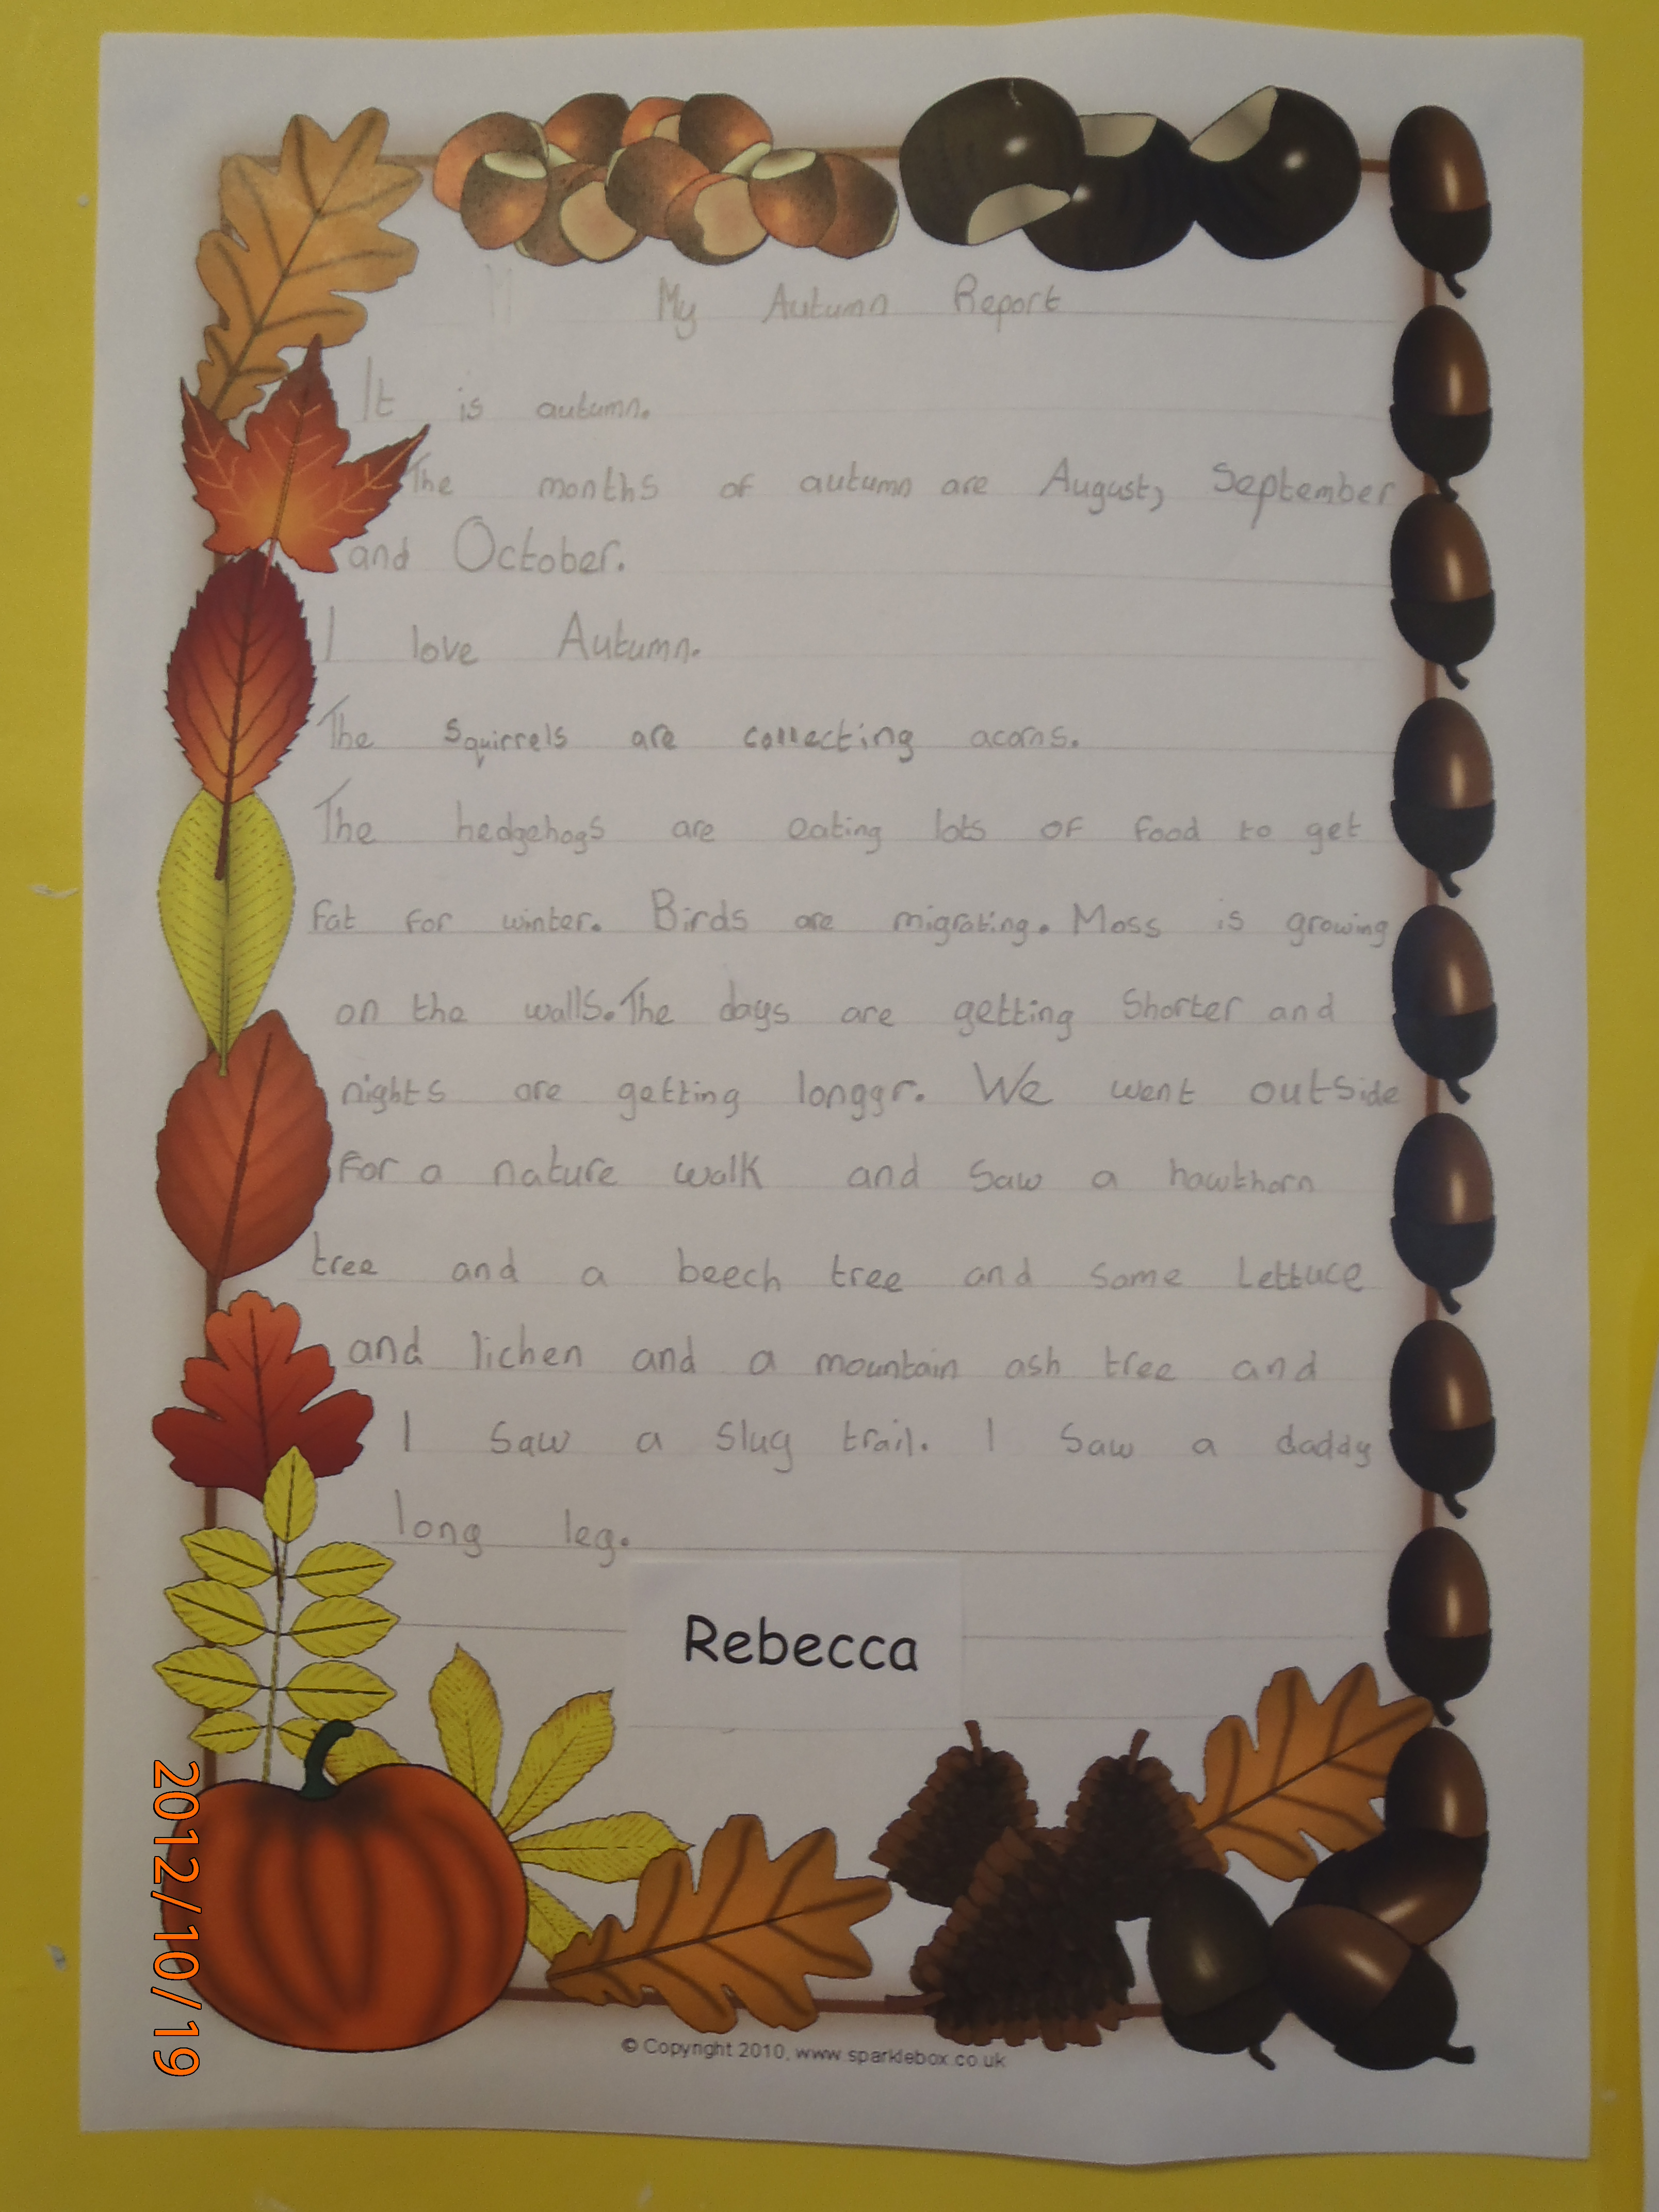 My Autumn Report
It is autumn.
The months of autumn are August, September
and October.
I love Autumn.
The squirrels are collecting acorns.
The hedgehogs are eating lots of food to get
fat for winter. Birds are migrating. Moss is growing
on the walls. The days are getting shorter and
nights are getting longgr. We went outside
for a nature walk and saw a hawthorn
tree and a beech tree and some Lettuce
and lichen and a mountain ash tree and
I saw a slug trail. I saw a daddy
long leg.
Rebecca
2012/10/19
© Copyright 2010, www.sparklebox.co.uk